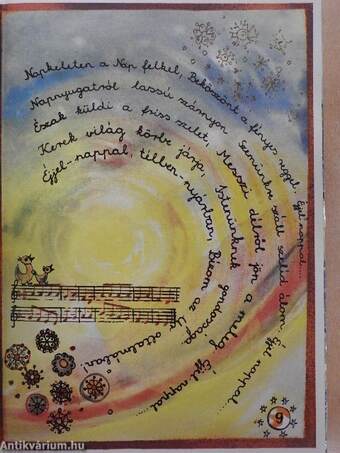 Napkeleten a Nap felkel, Beköszönt a fényes reggel. Éjjel-nappal....
Napnyugatról lassú szárnyon Szemünkre száll szelíd álom. Éjjel nappal....
Észak küldi a friss szelet, Messzi délről jön a meleg. Éjjel nappal....
Kerek világ körbe járja, Istenünknek gondossága
Éjjel-nappal, télben-nyárban, Bízom az oltalmában!
9
Antikvárium.hu